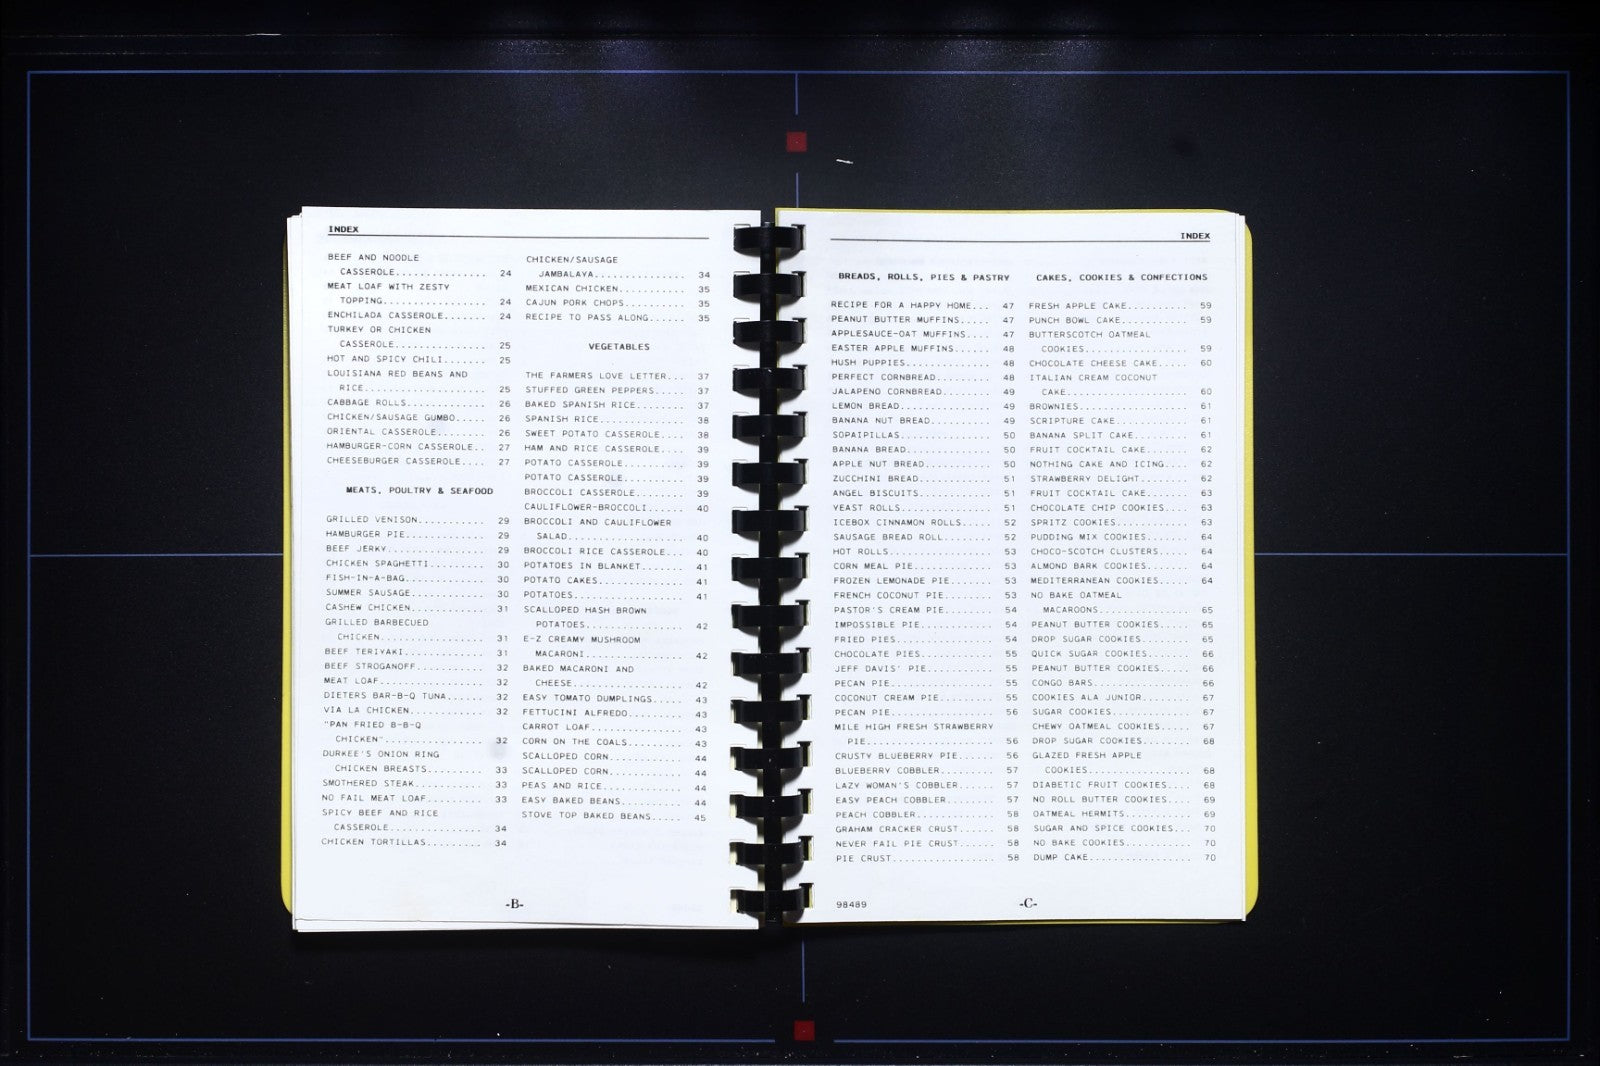 INDEX
BEEF AND NOODLE
CASSEROLE............... 24
MEAT LOAF WITH ZESTY
TOPPING................. 24
ENCHILADA CASSEROLE....... 24
TURKEY OR CHICKEN
CASSEROLE............... 25
HOT AND SPICY CHILI....... 25
LOUISIANA RED BEANS AND
RICE.................... 25
CABBAGE ROLLS............. 26
CHICKEN/SAUSAGE GUMBO..... 26
ORIENTAL CASSEROLE........ 26
HAMBURGER-CORN CASSEROLE.. 27
CHEESEBURGER CASSEROLE.... 27
MEATS, POULTRY & SEAFOOD
GRILLED VENISON........... 29
HAMBURGER PIE............. 29
BEEF JERKY................ 29
CHICKEN SPAGHETTI......... 30
FISH-IN-A-BAG............. 30
SUMMER SAUSAGE............ 30
CASHEW CHICKEN............ 31
GRILLED BARBECUED
CHICKEN................. 31
BEEF TERIYAKI............. 31
BEEF STROGANOFF........... 32
MEAT LOAF................. 32
DIETERS BAR-B-Q TUNA...... 32
VIA LA CHICKEN............ 32
"PAN FRIED B-B-Q
CHICKEN"................ 32
DURKEE'S ONION RING
CHICKEN BREASTS......... 33
SMOTHERED STEAK........... 33
NO FAIL MEAT LOAF......... 33
SPICY BEEF AND RICE
CASSEROLE............... 34
CHICKEN TORTILLAS......... 34
CHICKEN/SAUSAGE
JAMBALAYA............... 34
MEXICAN CHICKEN........... 35
CAJUN PORK CHOPS.......... 35
RECIPE TO PASS ALONG...... 35
VEGETABLES
THE FARMERS LOVE LETTER... 37
STUFFED GREEN PEPPERS..... 37
BAKED SPANISH RICE........ 37
SPANISH RICE.............. 38
SWEET POTATO CASSEROLE.... 38
HAM AND RICE CASSEROLE.... 39
POTATO CASSEROLE.......... 39
POTATO CASSEROLE.......... 39
BROCCOLI CASSEROLE........ 39
CAULIFLOWER-BROCCOLI...... 40
BROCCOLI AND CAULIFLOWER
SALAD................... 40
BROCCOLI RICE CASSEROLE... 40
POTATOES IN BLANKET....... 41
POTATO CAKES.............. 41
POTATOES.................. 41
SCALLOPED HASH BROWN
POTATOES................ 42
E-Z CREAMY MUSHROOM
MACARONI................ 42
BAKED MACARONI AND
CHEESE.................. 42
EASY TOMATO DUMPLINGS..... 43
FETTUCINI ALFREDO......... 43
CARROT LOAF............... 43
CORN ON THE COALS......... 43
SCALLOPED CORN............ 44
SCALLOPED CORN............ 44
PEAS AND RICE............. 44
EASY BAKED BEANS.......... 44
STOVE TOP BAKED BEANS..... 45
-B-
INDEX
BREADS, ROLLS, PIES & PASTRY
RECIPE FOR A HAPPY HOME... 47
PEANUT BUTTER MUFFINS..... 47
APPLESAUCE-OAT MUFFINS.... 47
EASTER APPLE MUFFINS...... 48
HUSH PUPPIES.............. 48
PERFECT CORNBREAD......... 48
JALAPENO CORNBREAD........ 49
LEMON BREAD............... 49
BANANA NUT BREAD.......... 49
SOPAIPILLAS............... 50
BANANA BREAD.............. 50
APPLE NUT BREAD........... 50
ZUCCHINI BREAD............ 51
ANGEL BISCUITS............ 51
YEAST ROLLS............... 51
ICEBOX CINNAMON ROLLS..... 52
SAUSAGE BREAD ROLL........ 52
HOT ROLLS................. 53
CORN MEAL PIE............. 53
FROZEN LEMONADE PIE....... 53
FRENCH COCONUT PIE........ 53
PASTOR'S CREAM PIE........ 54
IMPOSSIBLE PIE............ 54
FRIED PIES................ 54
CHOCOLATE PIES............ 55
JEFF DAVIS' PIE........... 55
PECAN PIE................. 55
COCONUT CREAM PIE......... 55
PECAN PIE................. 56
MILE HIGH FRESH STRAWBERRY
PIE..................... 56
CRUSTY BLUEBERRY PIE...... 56
BLUEBERRY COBBLER......... 57
LAZY WOMAN'S COBBLER...... 57
EASY PEACH COBBLER........ 57
PEACH COBBLER............. 58
GRAHAM CRACKER CRUST...... 58
NEVER FAIL PIE CRUST...... 58
PIE CRUST................. 58
CAKES, COOKIES & CONFECTIONS
FRESH APPLE CAKE.......... 59
PUNCH BOWL CAKE........... 59
BUTTERSCOTCH OATMEAL
COOKIES................. 59
CHOCOLATE CHEESE CAKE..... 60
ITALIAN CREAM COCONUT
CAKE.................... 60
BROWNIES.................. 61
SCRIPTURE CAKE............ 61
BANANA SPLIT CAKE......... 61
FRUIT COCKTAIL CAKE....... 62
NOTHING CAKE AND ICING.... 62
STRAWBERRY DELIGHT........ 62
FRUIT COCKTAIL CAKE....... 63
CHOCOLATE CHIP COOKIES.... 63
SPRITZ COOKIES............ 63
PUDDING MIX COOKIES....... 64
CHOCO-SCOTCH CLUSTERS..... 64
ALMOND BARK COOKIES....... 64
MEDITERRANEAN COOKIES..... 64
NO BAKE OATMEAL
MACAROONS............... 65
PEANUT BUTTER COOKIES..... 65
DROP SUGAR COOKIES........ 65
QUICK SUGAR COOKIES....... 66
PEANUT BUTTER COOKIES..... 66
CONGO BARS................ 66
COOKIES ALA JUNIOR........ 67
SUGAR COOKIES............. 67
CHEWY OATMEAL COOKIES..... 67
DROP SUGAR COOKIES........ 68
GLAZED FRESH APPLE
COOKIES................. 68
DIABETIC FRUIT COOKIES.... 68
NO ROLL BUTTER COOKIES.... 69
OATMEAL HERMITS........... 69
SUGAR AND SPICE COOKIES... 70
NO BAKE COOKIES........... 70
DUMP CAKE................. 70
98489
-C-